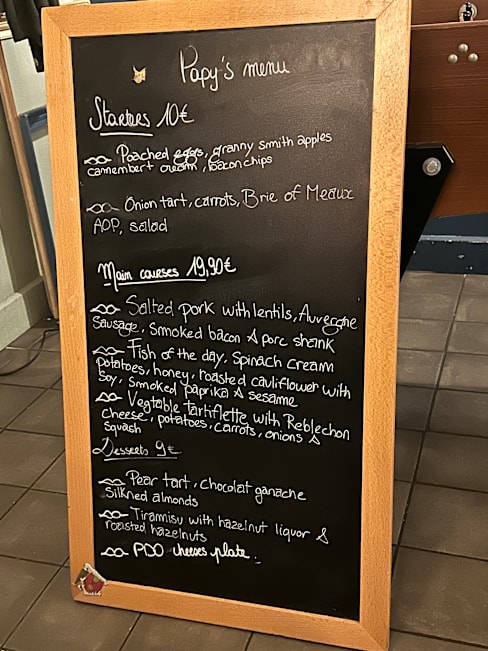 Papy's menu
Starters 10€
Poached eggs, granny smith apples
camembert cream, bacon chips
Onion tart, carrots, Brie of Meaux
AOP, salad
Main courses 19,90€
Salted pork with lentils, Auvergne
Sausage, Smoked bacon & porc shank
Fish of the day, Spinach cream
potatoes, honey, roasted cauliflower with
soy, smoked paprika & sesame
Vegtable tartiflette with Reblechon
cheese, potatoes, carrots, onions &
squash
Desserts 9€
Pear tart, Chocolat ganache
Silkned almonds
Tiramisu with hazelnut liquor &
roasted hazelnuts
PDO cheeses plate.